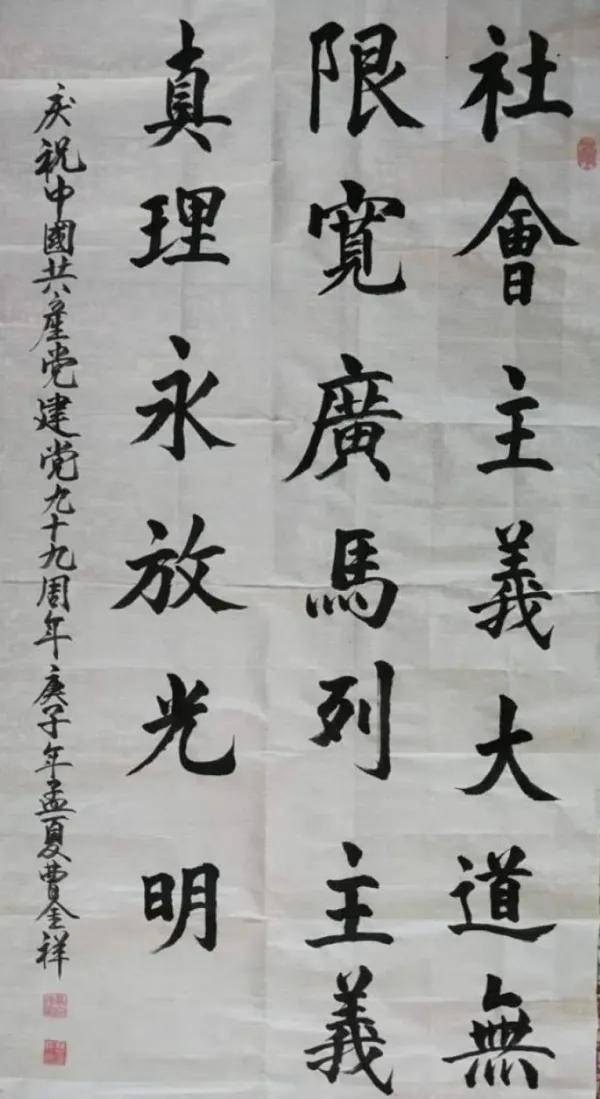 社會主義大道無
限寬廣馬列主義
真理永放光明
庆祝中國共產党建党九十九周年庚子年孟夏曹金祥